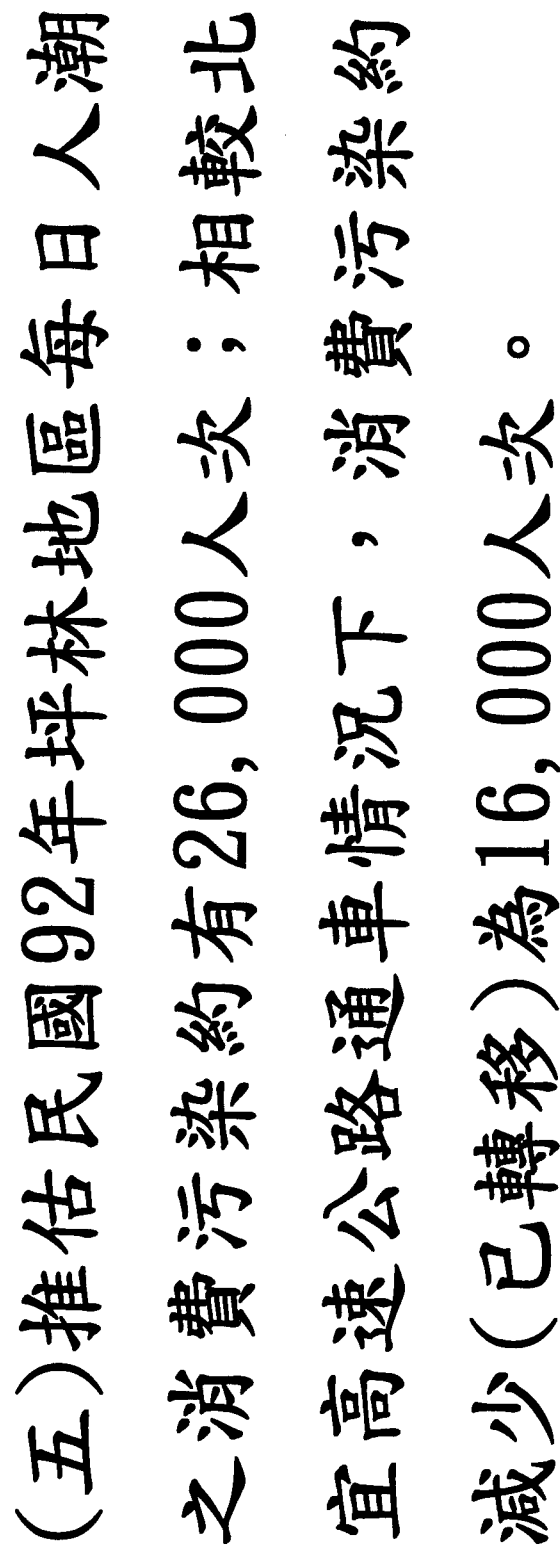 (五)推估民國92年坪林地區每日人潮
之消費污染約有26,000人次；相較北
宜高速公路通車情況下，消費污染約
減少(已轉移)為16,000人次。